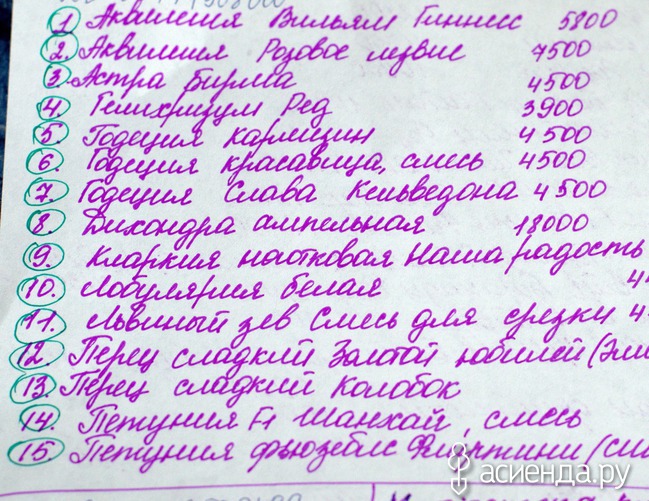 1. Аквилегия Вильям Гиннесс 5800
2. Аквилегия Розовое лезвие 7500
3. Астра Бирма 4500
4. Гелихризум Ред 3900
5. Годеция Кармицин 4500
6. Годеция красавица, смесь 4500
7. Годеция Слава Кельведона 4500
8. Дихондра ампельная 18000
9. Кларкия ноготковая Наша радость
10. Лобулярия белая
11. Львиный зев Смесь для срезки
12. Перец сладкий Золотой юбилей
13. Перец сладкий Колобок
14. Петуния F1 Шанхай, смесь
15 Петуния
асиенда.ру